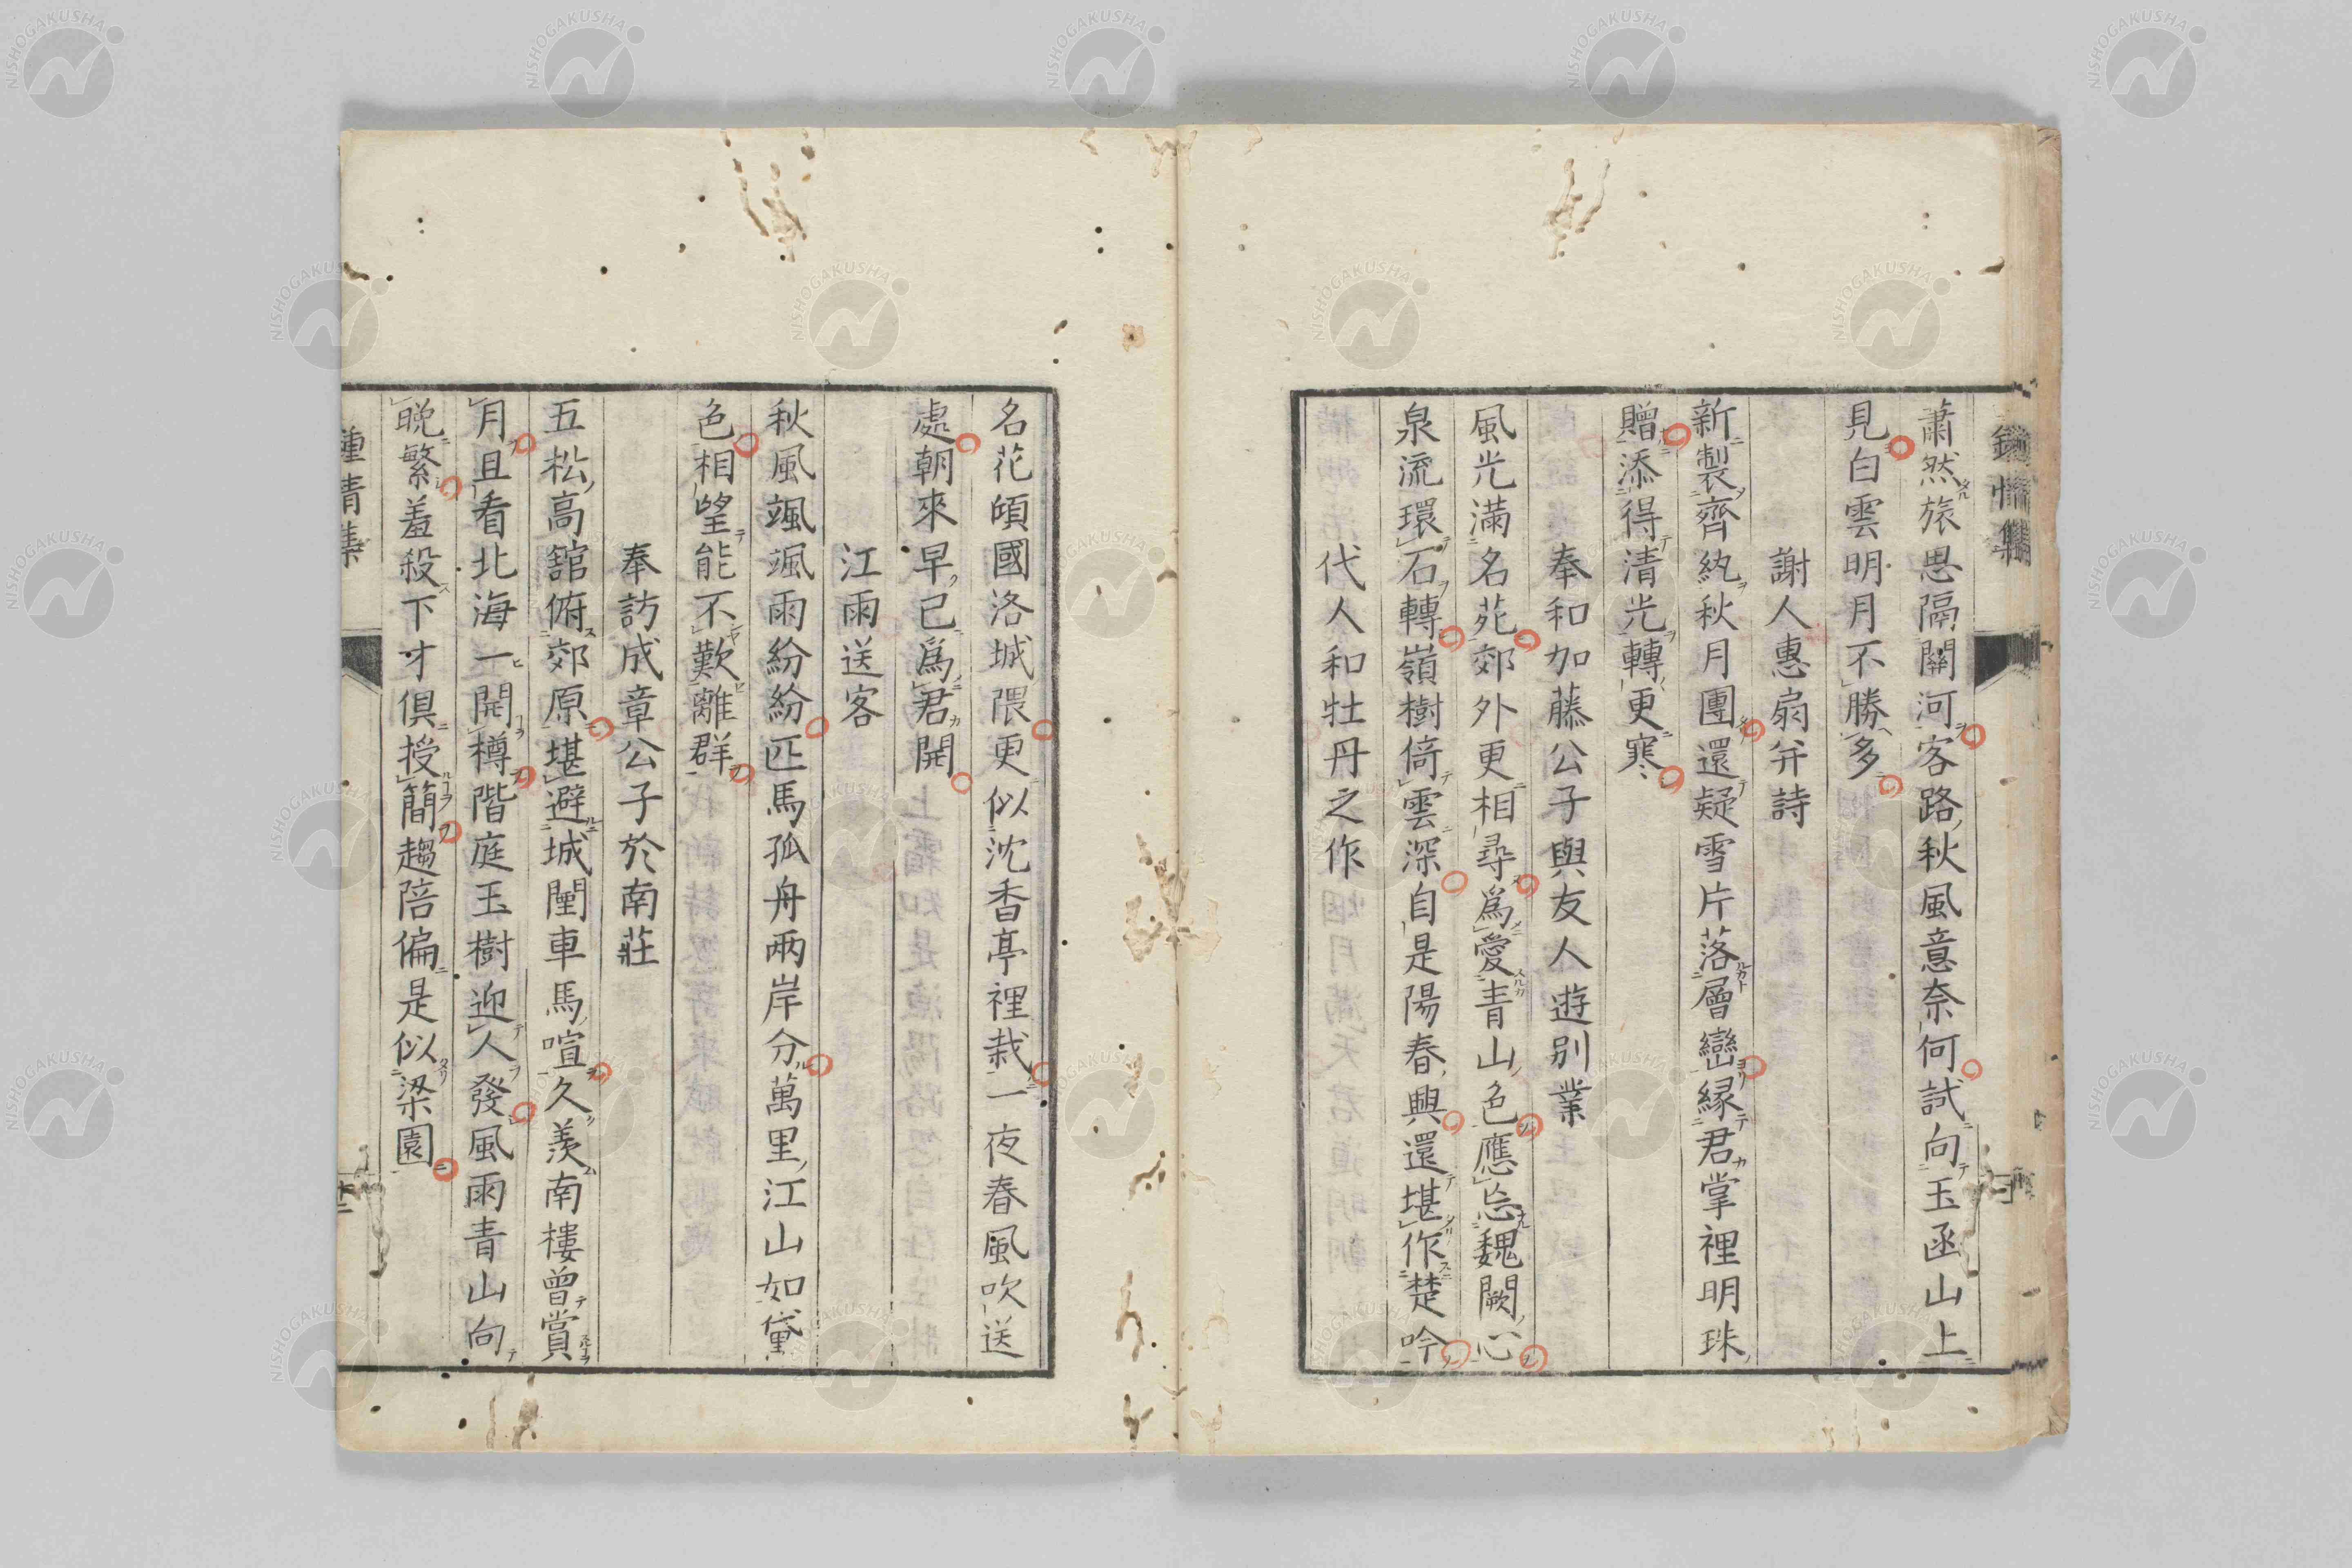 蕭然旅思隔關河客路秋風意奈何試向玉函山上
見白雲明月不勝多
謝人惠扇并詩
新製齊紈秋月團還疑雪片落層巒緣君掌裡明珠
贈添得清光轉更寒
奉和加藤公子與友人遊別業
風光滿名苑郊外更相尋爲愛青山色應忘魏闕心
泉流環石轉嶺樹倚雲深自是陽春興還堪作楚吟
代人和牡丹之作
名花傾國洛城隈更似沈香亭裡栽一夜春風吹送
處朝來早已爲君開
江雨送客
秋風颯颯雨紛紛匹馬孤舟兩岸分萬里江山如黛
色相望能不歎離群
奉訪成章公子於南莊
五松高舘俯郊原堪避城闉車馬喧久羨南樓曾賞
月且看北海一開樽階庭玉樹迎人發風雨青山向
晚繁羞殺下才倶授簡趨陪偏是似梁園
鍾情集